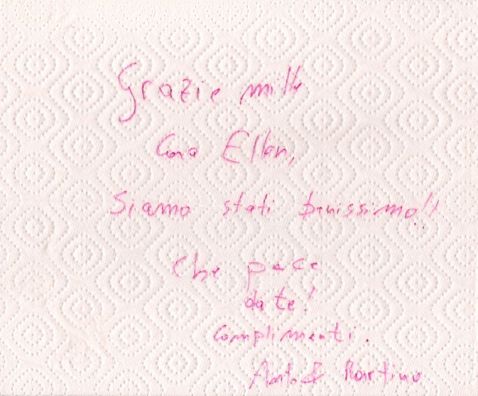 Grazie mille
Cara Ellen,
Siamo stati benissimo!!
Che pace
da te!
Complimenti.
& Martino